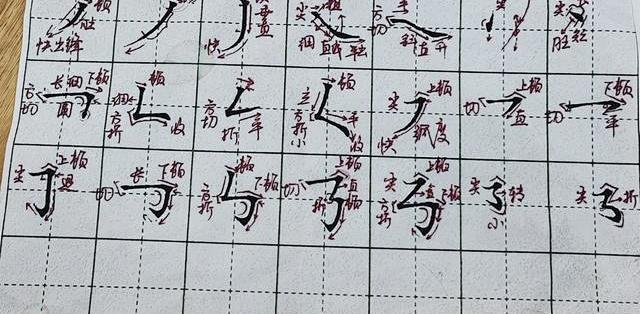 顿 重 尖 粗 方 平 尖
快出锋 快 细 直 转 切 斜 直 升 胖 短
方切 长 细 下顿 圆 细 顿 方折 收 方切 折 平 立 顿 方折 小 平 收 尖 上顿 快 弧度 切 上顿 直 切 下顿 平
尖 上顿 切 长 下顿 方折 顿 下顿 切 上顿 直 折 顿 尖 上顿 方折 直 下顿 尖 转 小 尖 折